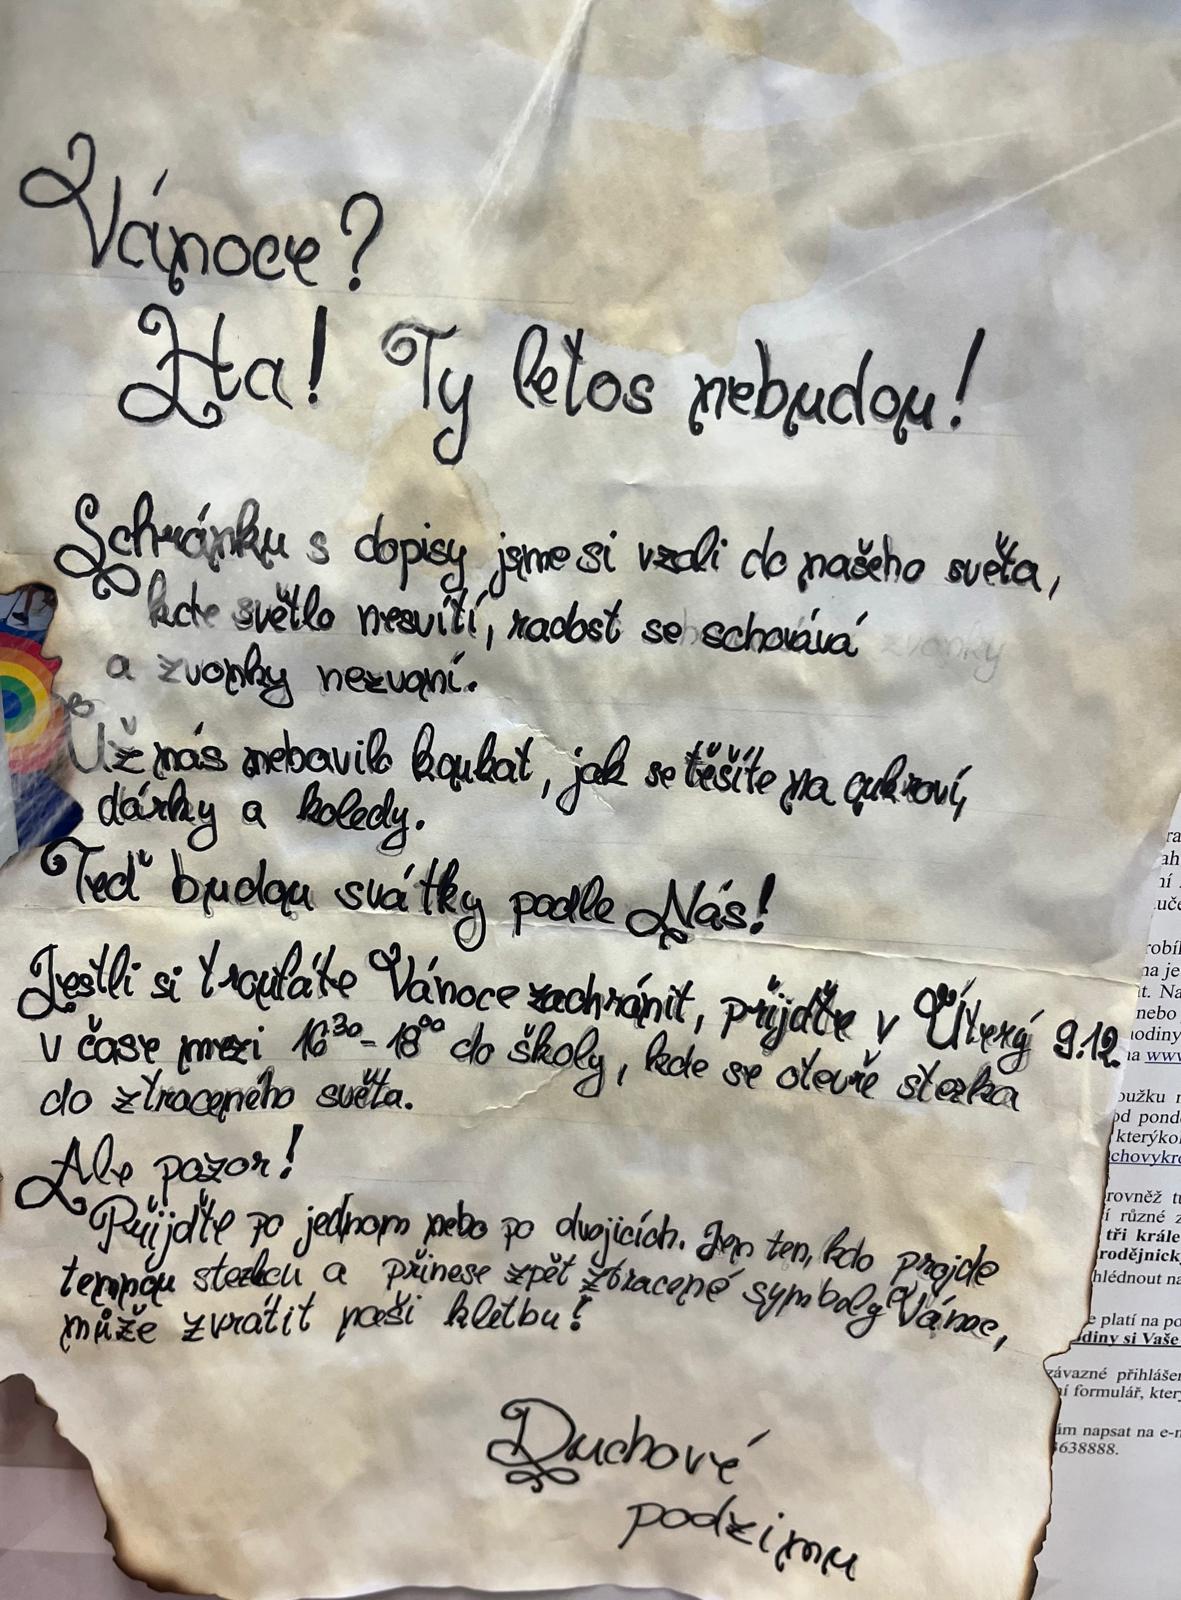 Vánoce?
Ha! Ty letos nebudou!
Schránku s dopisy jsme si vzali do našeho světa,
kde světlo nesvítí, radost se schovává
a zvonky nezvoní.
Už nás nebavilo koukat, jak se těšíte na cukroví,
dárky a koledy.
Teď budou svátky podle Nás!
Jestli si troufáte Vánoce zachránit, přijďte v Úterý 9.12.
v čase mezi 16³⁰-18⁰⁰ do školy, kde se otevře stezka
do ztraceného světa.
Ale pozor!
Přijďte po jednom nebo po dvojicích. Jen ten, kdo projde
temnou stezkou a přinese zpět ztracené symboly Vánoc,
může zvrátit naši kletbu!
Duchové
podzimu
robí
na je
it. Na
nebo
hodiny
na www
oužku
od pond
kterýkol
chovykr
rovněž
í různé z
tři krále
rodějnick
hlédnout na
e platí na po
diny si Vaše
závazné přihláše
ní formulář, kter
ám napsat na e-
638888.